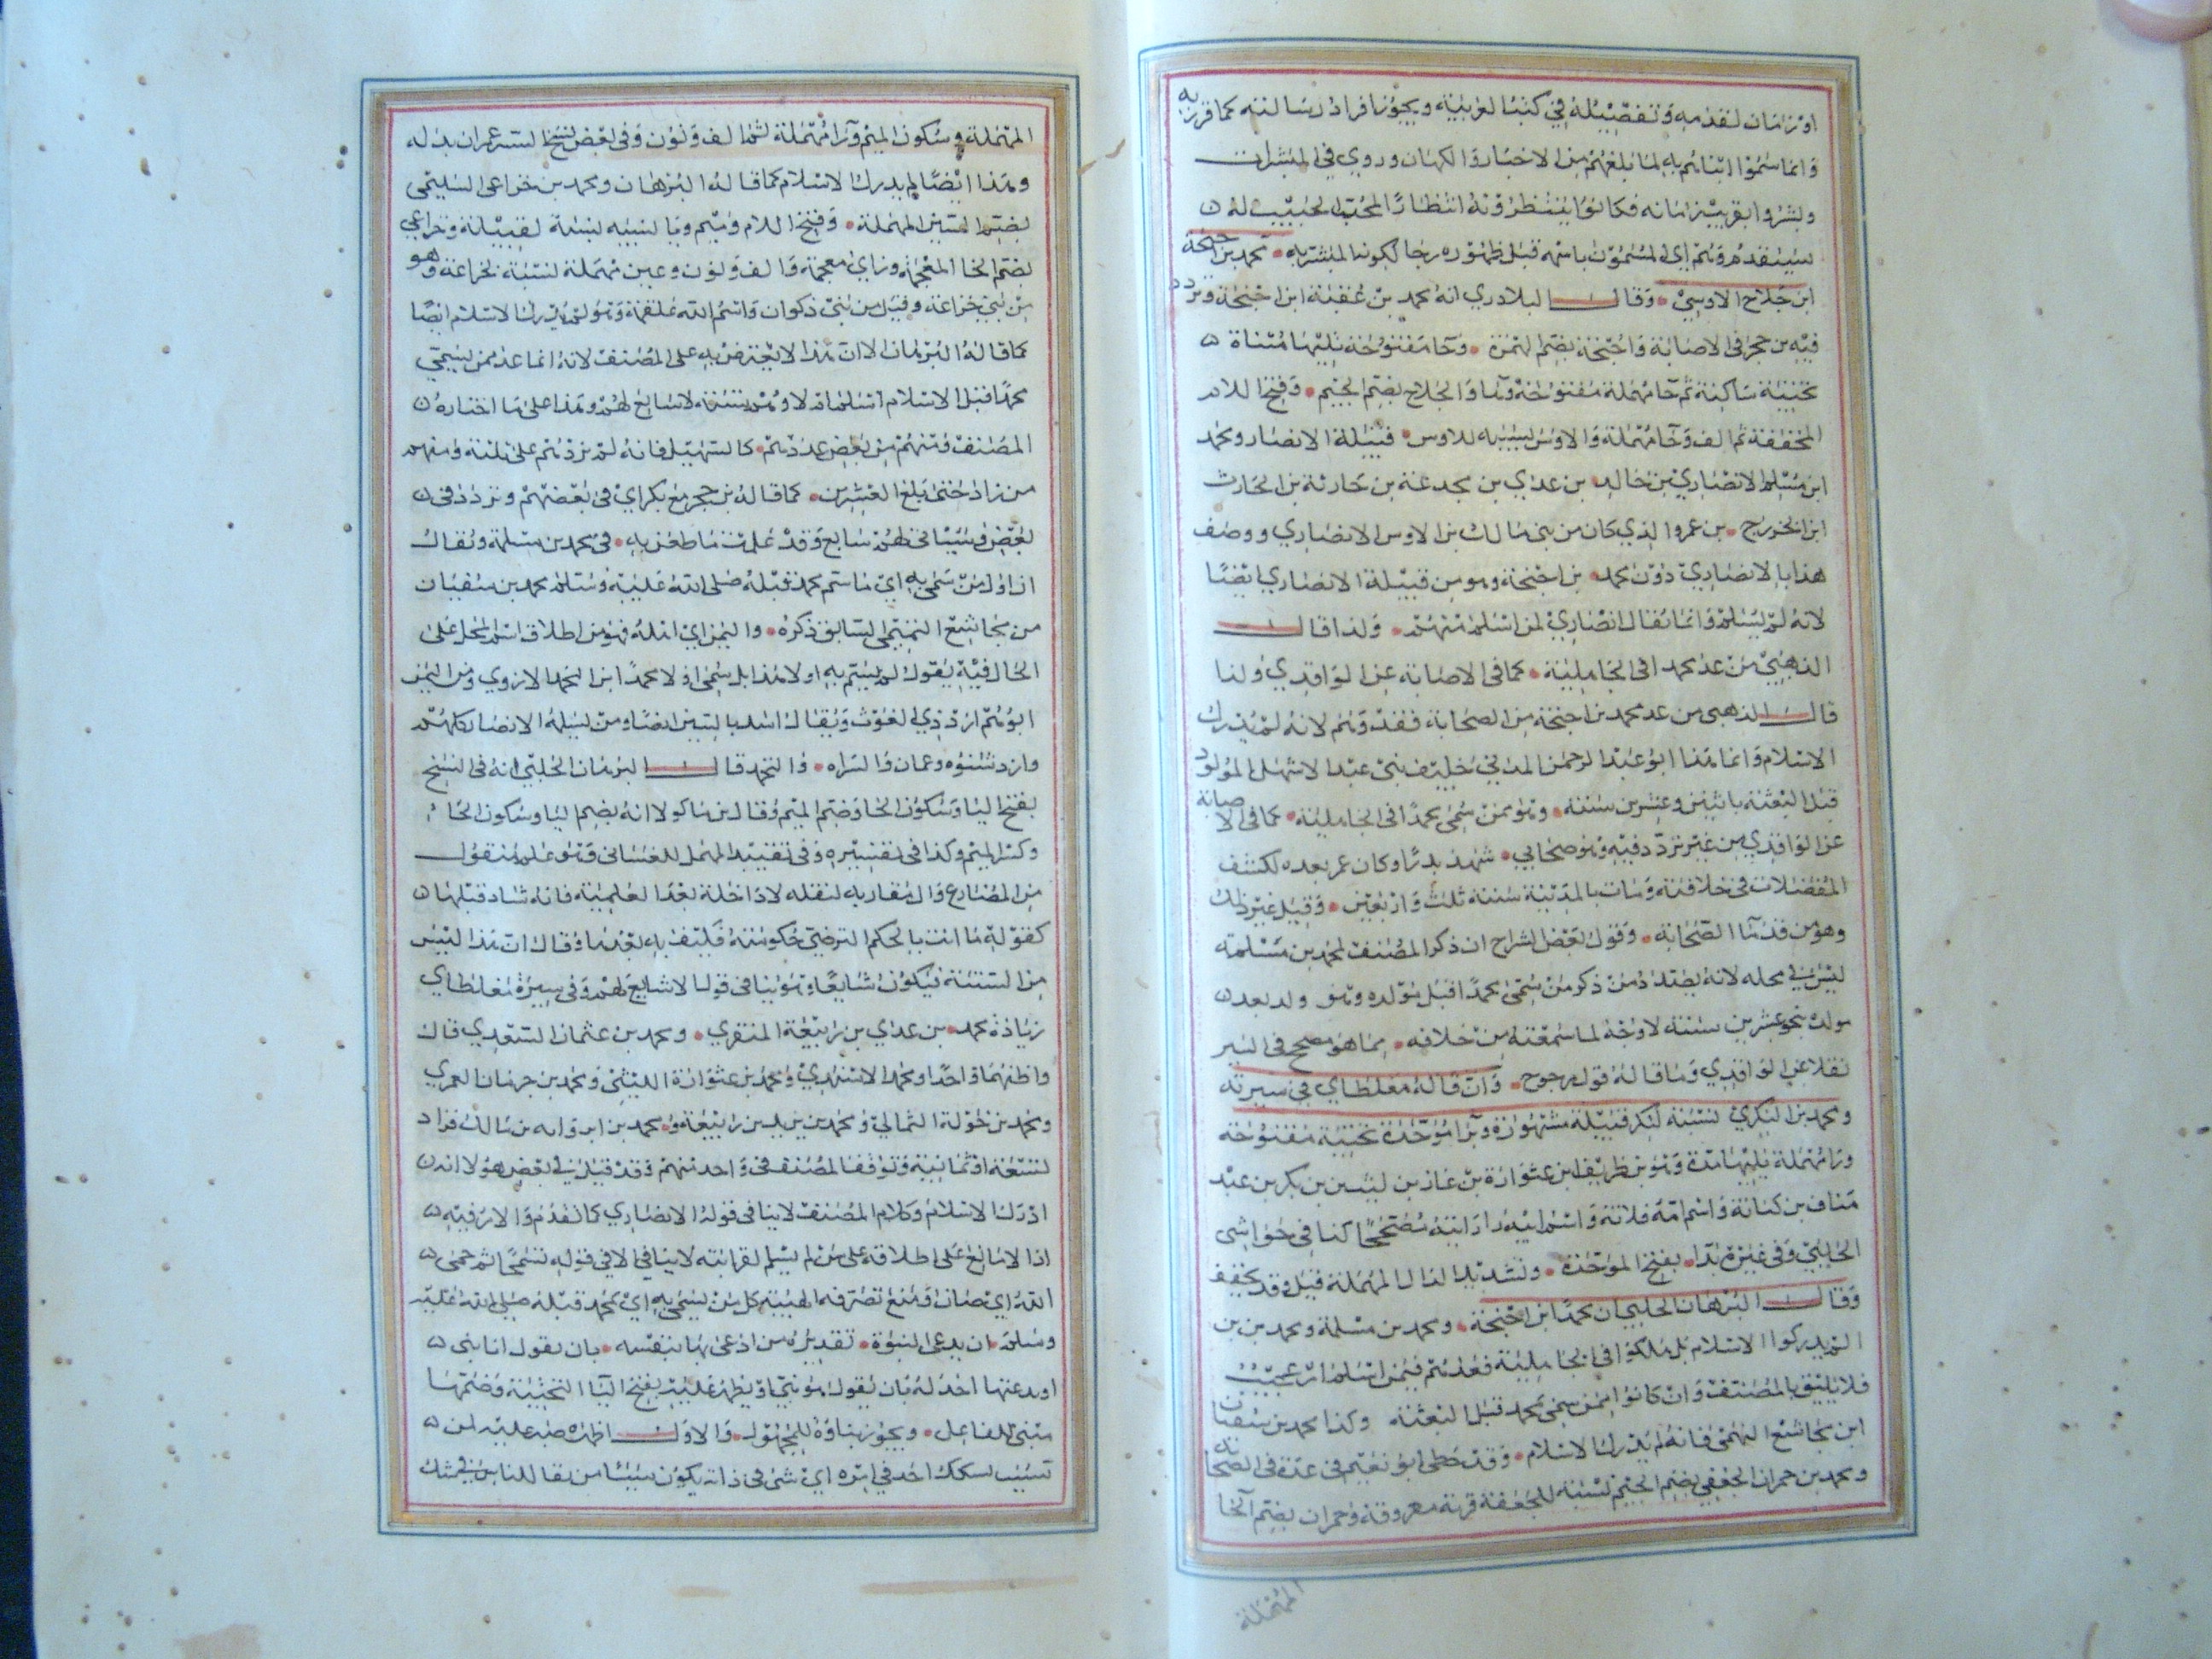 او زمان تقدمه وتفصيله في كتب العربية ويجوز افراد رسالته كما قرر به
وانما سموا ابناءهم به لما بلغهم من الاخبار والكهان وروي في المبشرات
وبشروا بقرب زمانه فكانوا ينتظرونه انتظار المحب الحبيب له
سيتقدم وهم اي المسمون باسمه قبل ظهوره رجا لكونه المبشر به محمد بن احيحة
ابن جلاح الاوسي وقال البلادري انه محمد بن عقبة ابن احيحة وتردد
فيه بن حجر في الاصابة واحيحة بضم الهمزة وحا مفتوحة يليها مثناة
تحتية ساكنة ثم حا مهملة مفتوحة وها والجلاح بضم الجيم وفتح اللام
المخففة ثم الف وحا مهملة والاوسي نسبة للاوس قبيلة الانصار ومحمد
ابن مسلمة الانصاري بن خالد بن عدي بن مجدعة بن حارثة بن الحارث
ابن الخزرج بن عمرو الذي كان من بني مالك بن الاوس الانصاري ووصف
هذا بالانصاري دون محمد بن احيحة وهو من قبيلة الانصاري ايضا
لانه لم يسلم وانما يقال انصاري لمن اسلم منهم ولذا قال
الذهبي من عد محمدا في الجاهلية كما في الاصابة عن الواقدي ولذا
قال الذهبي من عد محمد بن احيحة من الصحابة فقد وهم لانه لم يدرك
الاسلام وانما هذا ابو عبد الرحمن المدني حليف بني عبد الاشهل المولود
قبل البعثة باثنين وعشرين سنة وهو ممن سمي محمدا في الجاهلية كما في الاصابة
عن الواقدي من غير تردد فيه وهو صحابي شهد بدرا وكان عمر يعده لكشف
المعضلات في خلافته ومات بالمدينة سنة ثلث واربعين وقيل غير ذلك
وهو من قدما الصحابة وقول بعض الشراح ان ذكر المصنف لمحمد بن مسلمة
ليس في محله لانه بصدد من ذكر من سمي محمدا قبل مولده وهو ولد بعد
مولده بنحو عشرين سنة لا وجه له لما سمعته من خلافه مما هو مصحح في السير
نقلا عن الواقدي وما قاله قول مرجوح وان قاله مغلطاي في سيرته
ومحمد بن البكري نسبة لبكر قبيلة مشهورة وبرا موحدة تحتية مفتوحة
ورا مهملة يليها مدة وهو بن طريف ابن عتوارة بن عازب ليث بن بكر بن عبد
مناف بن كنانة واسم امه فلانة واسم ابيه رايته مصححا كذا في حواشي
الحلبي وفي غيره بدا بفتح الموحدة وتشديد الدال المهملة قيل وقد يخفف
وقال البرهان الحلبي ان محمدا ابن احيحة ومحمد بن مسلمة ومحمد بن
لم يدركوا الاسلام بل هلكوا في الجاهلية فعدهم فيمن اسلم امر عجيب
فلا يليق بالمصنف وان كانوا ممن سمي محمد قبل البعثة وكذا محمد بن سفيان
ابن مجاشع التميمي فانه لم يدرك الاسلام وقد خطى ابو نعيم في عده في الصحابة
ومحمد بن حمران الجعفي بضم الجيم نسبة للجعفة قرية معروفة وحمران بضم الحا
المهملة
المهملة وسكون الميم ورا مهملة ثم الف ونون وفي بعض نسخ السير عمران بدله
وهذا ايضا لم يدرك الاسلام كما قاله البرهان ومحمد بن خزاعي السلمي
بضم السين المهملة وفتح اللام وميم ويا نسبة نسبة لقبيلة وخزاعي
بضم الخا المعجمة وزاي معجمة والف ونون وعين مهملة نسبة لخزاعة وهو
من بني خزاعة وقيل من بني ذكوان واسم امه علقمة وهو لم يدرك الاسلام ايضا
كما قاله البرهان الا ان هذا لا يعترض به على المصنف لانه انما عد من يسمى
محمدا قبل الاسلام اسلم ام لا وهم ستة لا سابع لهم وهذا على ما اختاره
المصنف ومنهم من بعض عددهم كالسهيلي فانه لم يزدهم على ثلثة ومنهم
من زاد حتى بلغ العشرين كما قاله بن حجر مع تكرار في بعضهم وتردد في
بعض وسياتي لهم سابع وقد علمت ما طعن به في محمد بن مسلمة ويقال
ان اول من سمي به اي باسم محمد قبله صلى الله عليه وسلم محمد بن سفيان
من مجاشع التميمي السابق ذكره واليمن اي اهله فهو من اطلاق اسم المحل على
الحال فيه يقول لم يسم به اولا هذا بل سمي اولا محمدا ابن اليحمد الازدي ومن اليمن
ابوهم ازد ذي الغوث ويقال اسد بالسين ايضا ومن نسله الانصار كلهم
وازد شنؤه وعمان والسراه واليحمد قال البرهان الحلبي انه في النسخ
بفتح اليا وسكون الحا وضم الميم وقال بن ماكولا انه بضم اليا وسكون الحا
وكسر الميم وكذا في تفسيره وفي تقييد المهمل للغساني وهو علم منقول
من المضارع وال مقارنه لنقله لا داخلة بعد العلمية فانه شاذ قبلها
كقوله ما انت بالحكم الترضى حكومته فكيف به بعدها وقال ان هذا ليس
من الستة فيكون سابعا وهو ينافي قوله لا سابع لهم وفي سيرة مغلطاي
زيادة محمد بن عدي بن ربيعة المنقري ومحمد بن عثمان السعدي قال
واظنهما واحدا ومحمد الاسيدي ومحمد بن عتوارة الليثي ومحمد بن حرمان العمري
ومحمد بن خولة الثمالي ومحمد بن يزيد بن ربيعة ومحمد بن ابن وابه بن مالك فزاد
تسعة او ثمانية وتوقف المصنف في واحد منهم وقد قيل في بعض هؤلا انه
ادرك الاسلام وكلام المصنف لا ينافي قوله الانصاري كما تقدم والامر فيه
اذا لا مانع على اطلاقه على من لم يسلم لقرابته لا ينافي في قوله تسمى ثم حمى
الله اي صان ومنع تصرفه الهيبة كل من يسمى به اي محمد قبله صلى الله عليه
وسلم ان يدعي النبوة تقديره من ادعى بها بنفسه بان يقول انا نبي
او يدعيها احد له بان يقول هو نبي او يظهر عليه بفتح اليا التحتية وضمها
مبني للفاعل ويجوز بناؤه للمجهول والاول اظهره عليه لمن
سبب يشكك احد في امره اي شئ في ذاته يكون سببا من يقال للناس في مثله